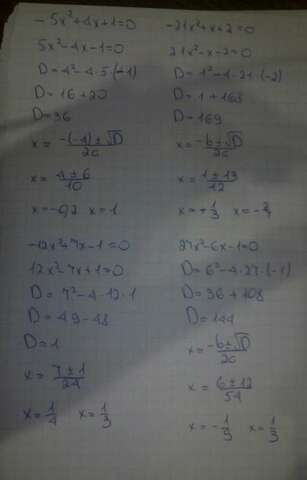 -5x²+4x+1=0
5x²-4x-1=0
D=4²-4·5·(-1)
D=16+20
D=36
x=-(-4)±√D/2a
x=4±6/10
x=-0,2 x=1
-21x²+x+2=0
21x²-x-2=0
D=1²-4·21·(-2)
D=1+168
D=169
x=-b±√D/2a
x=1±13/42
x=+1/3 x=-2/7
-12x²+7x-1=0
12x²-7x+1=0
D=7²-4·12·1
D=49-48
D=1
x=7±1/24
x=1/4 x=1/3
27x²-6x-1=0
D=6²-4·27·(-1)
D=36+108
D=144
x=-b±√D/2a
x=6±12/54
x=-1/9 x=1/3